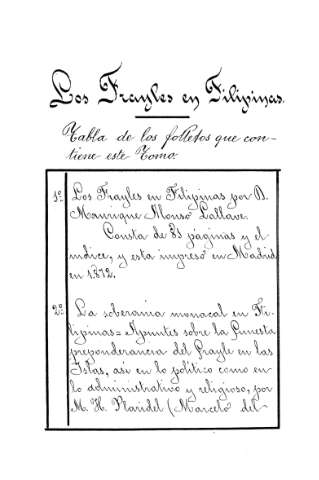 Los Frayles en Filipinas.
Tabla de los folletos que con-
tiene este Tomo.
1º Los Frayles en Filipinas por D.
Manrique Alonso Lallave.
Consta de 83 páginas y el
indice, y esta impreso en Madrid
en 1872.
2º La soberania monacal en Fi-
lipinas = Apuntes sobre la funesta
preponderancia del Frayle en las
Islas, asi en lo político como en
lo administrativo y religioso, por
M. H. Plaridel (Marcelo del